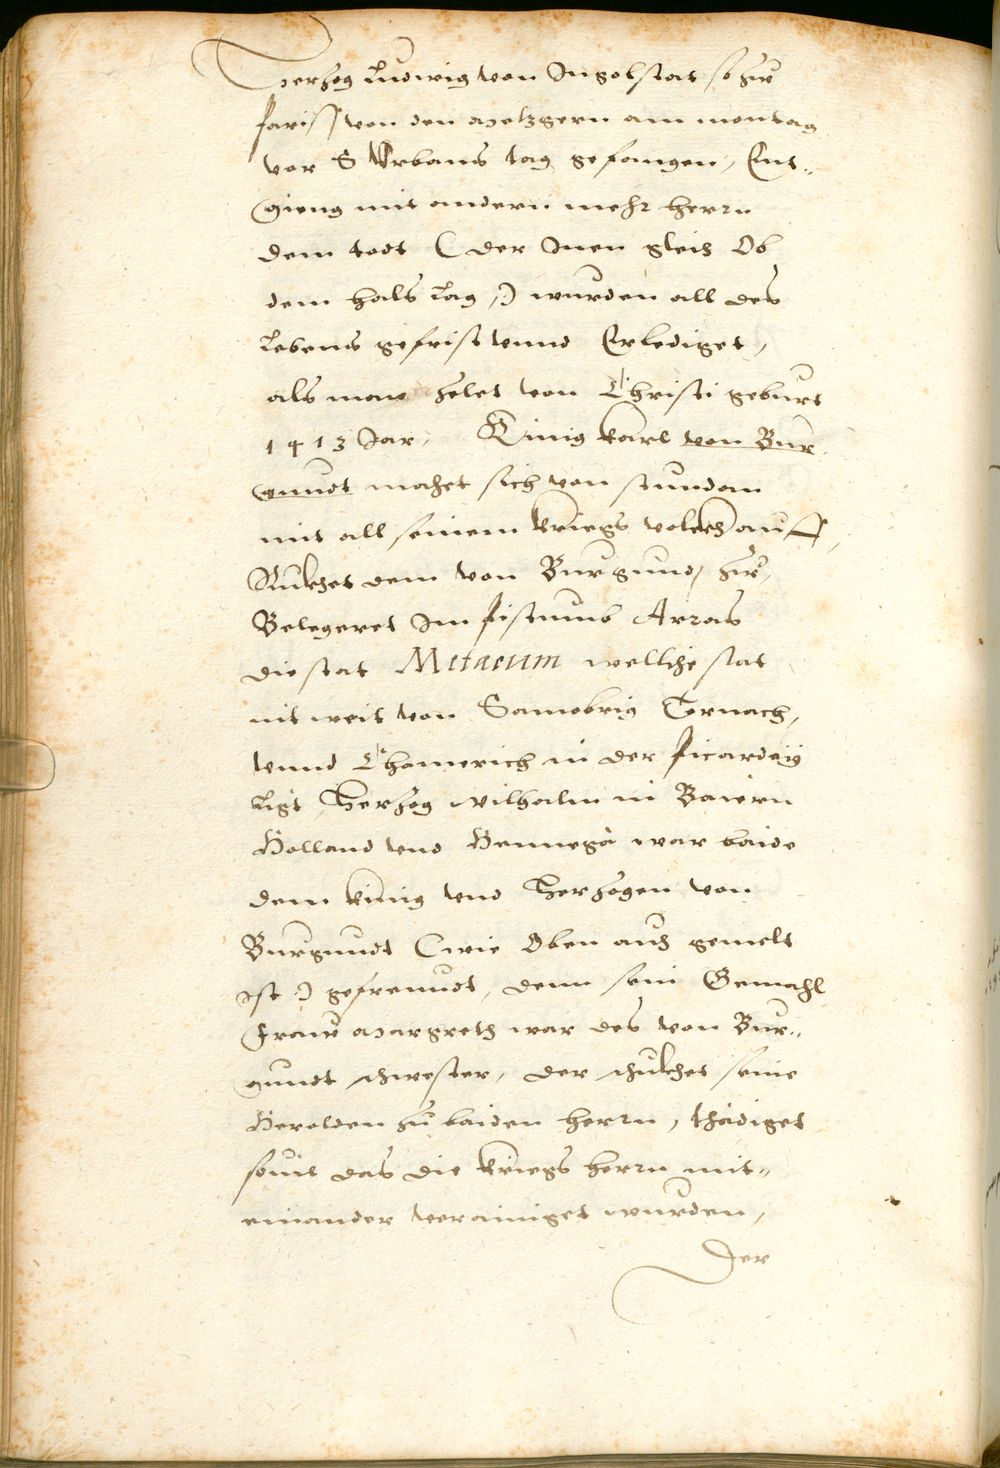 Hertzog Ludwig von Ingolstat so zu
Pariss von den Metzgern am montag
vor S Urbans tag gefangen, Ent-
gieng mit andern mehr herrn
dem todt (der Inen gleich Ob
dem hals lag,) wurden all des
Lebens gefrist unnd Erlediget,
als man zelet von Christi geburt
1413 Jar, Künig Karl von Bur
gundt machet sich von stundan
mit all seinem kriegs volckh auff,
Rukhet dem von Burgund, zu,
Belegeret Im Pistumb Arras
die stat Metacum welliche stat
nit weit von Samobrig Tornach,
unnd Chamerich in der Picardey
Ligt, Hertzog wilhalm in Baiern
Holland und Hennegà war baide
dem künig und Hertzogen von
Burgundt (wie Oben auch gemelt
Ist:) gefreundt, denn sein Gemahl
Fraw Margreth war des von Bur-
gundt schwester, der schickhet seine
Herolden zu baiden herrn, thädiget
souil das die kriegs herrn mit-
einander verainiget wurden,
Der